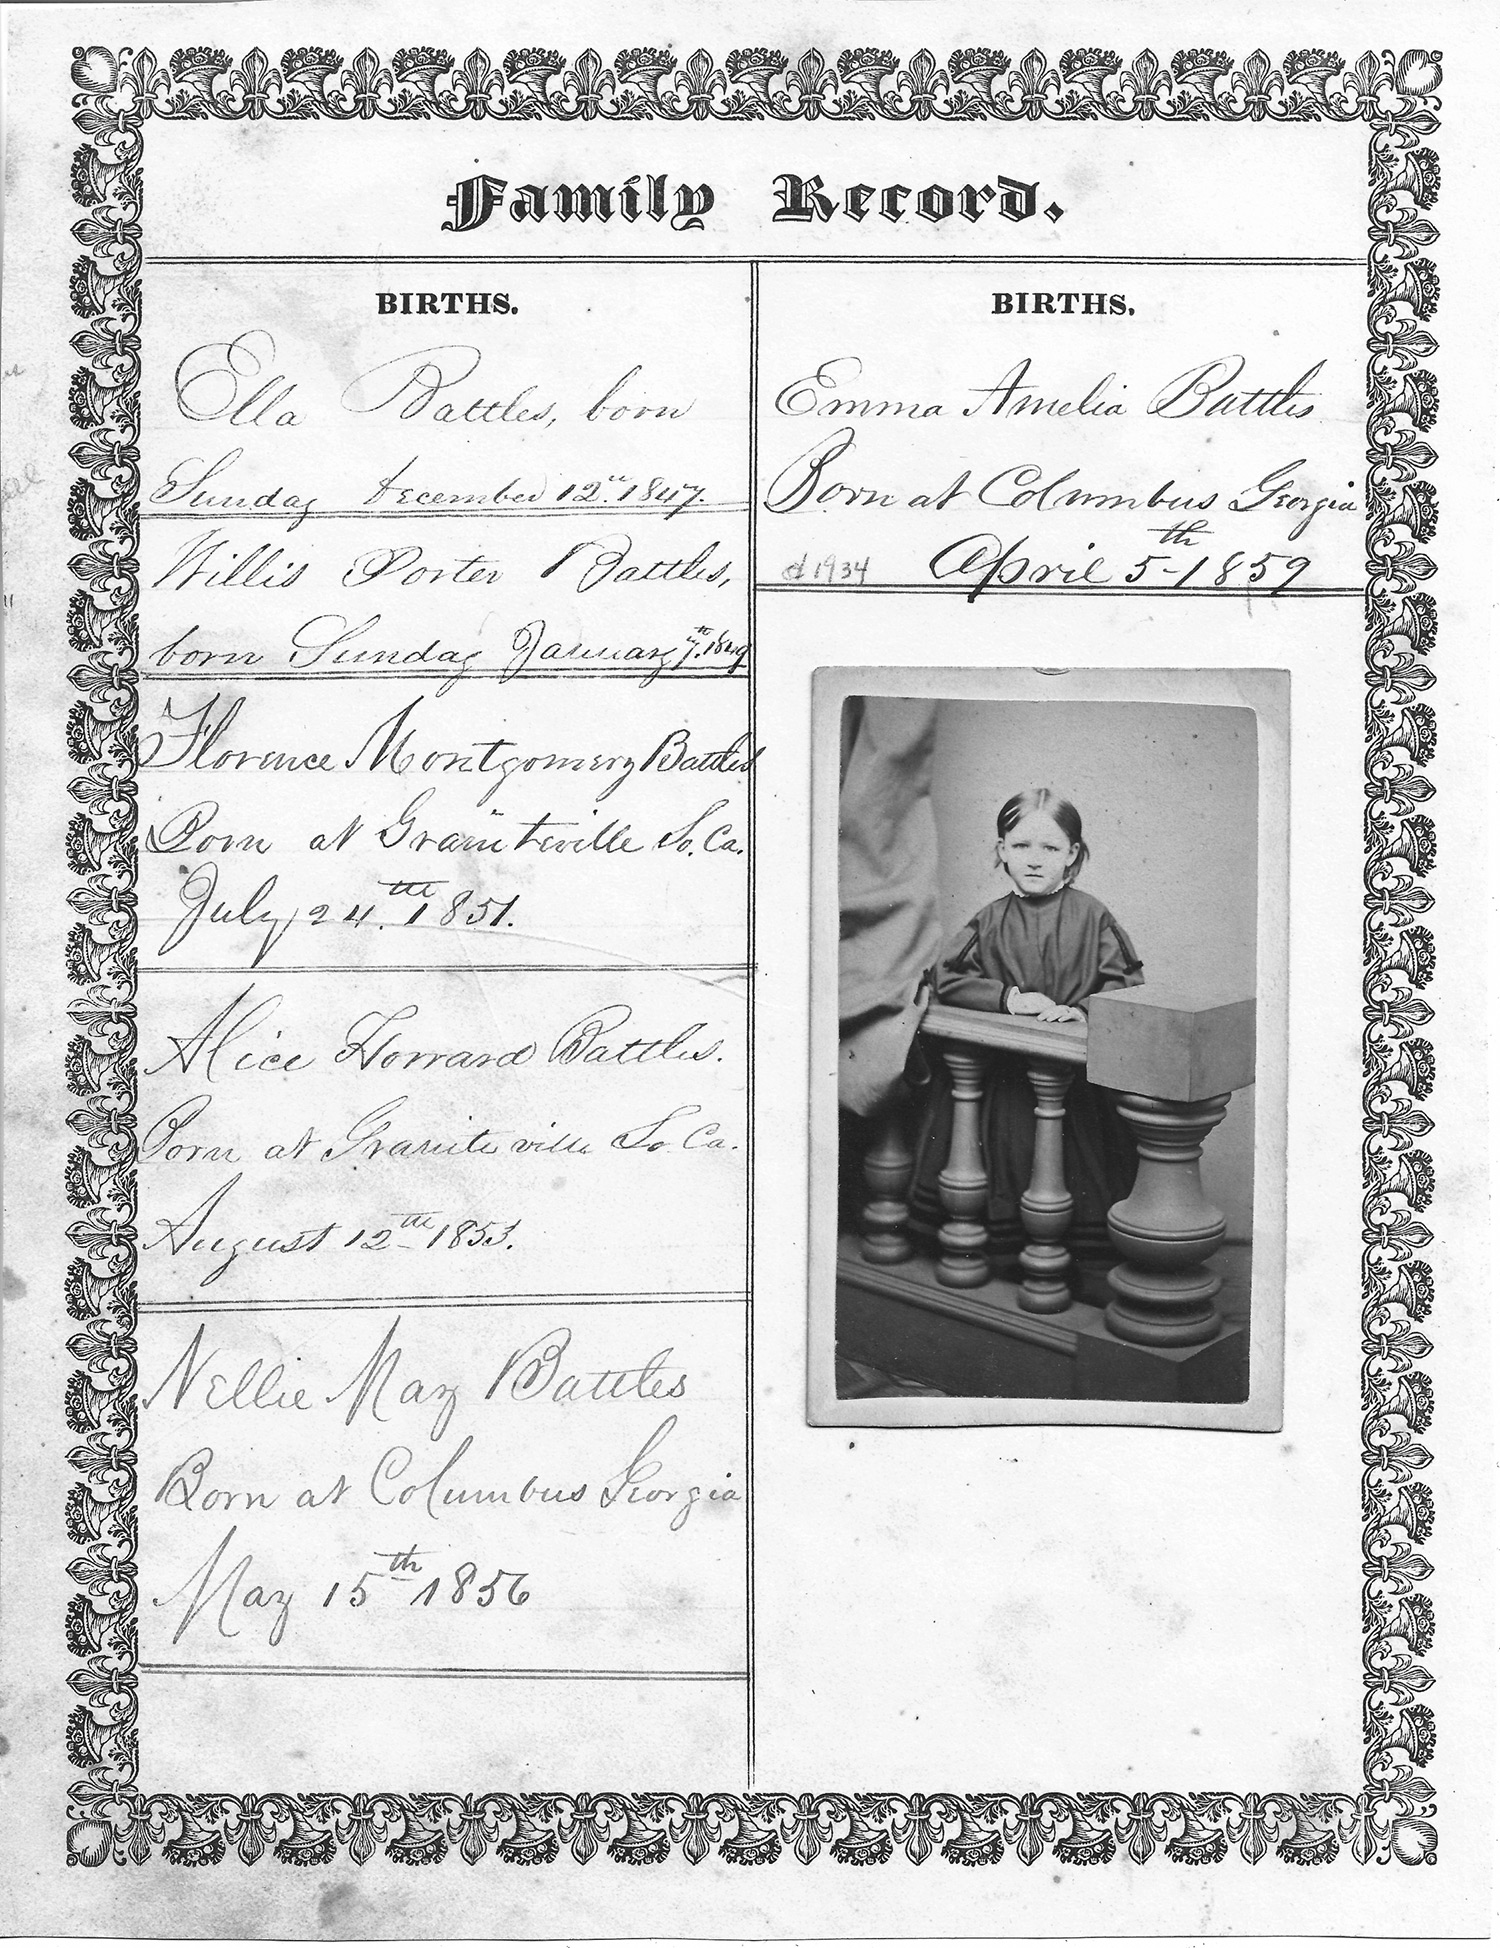 Family Record.
BIRTHS.
Ella Battles, born
Sunday December 12th 1847.
Willis Porter Battles,
born Sunday January 7th. 1849
Florence Montgomery Battles
Born at Graniteville So. Ca.
July 24th. 1851.
Alice Howard Battles.
Born at Graniteville So. Ca.
August 12th 1853.
Nellie May Battles
Born at Columbus Georgia
May 15th 1856
BIRTHS.
Emma Amelia Battles
Born at Columbus Georgia
d 1934 April 5th 1859